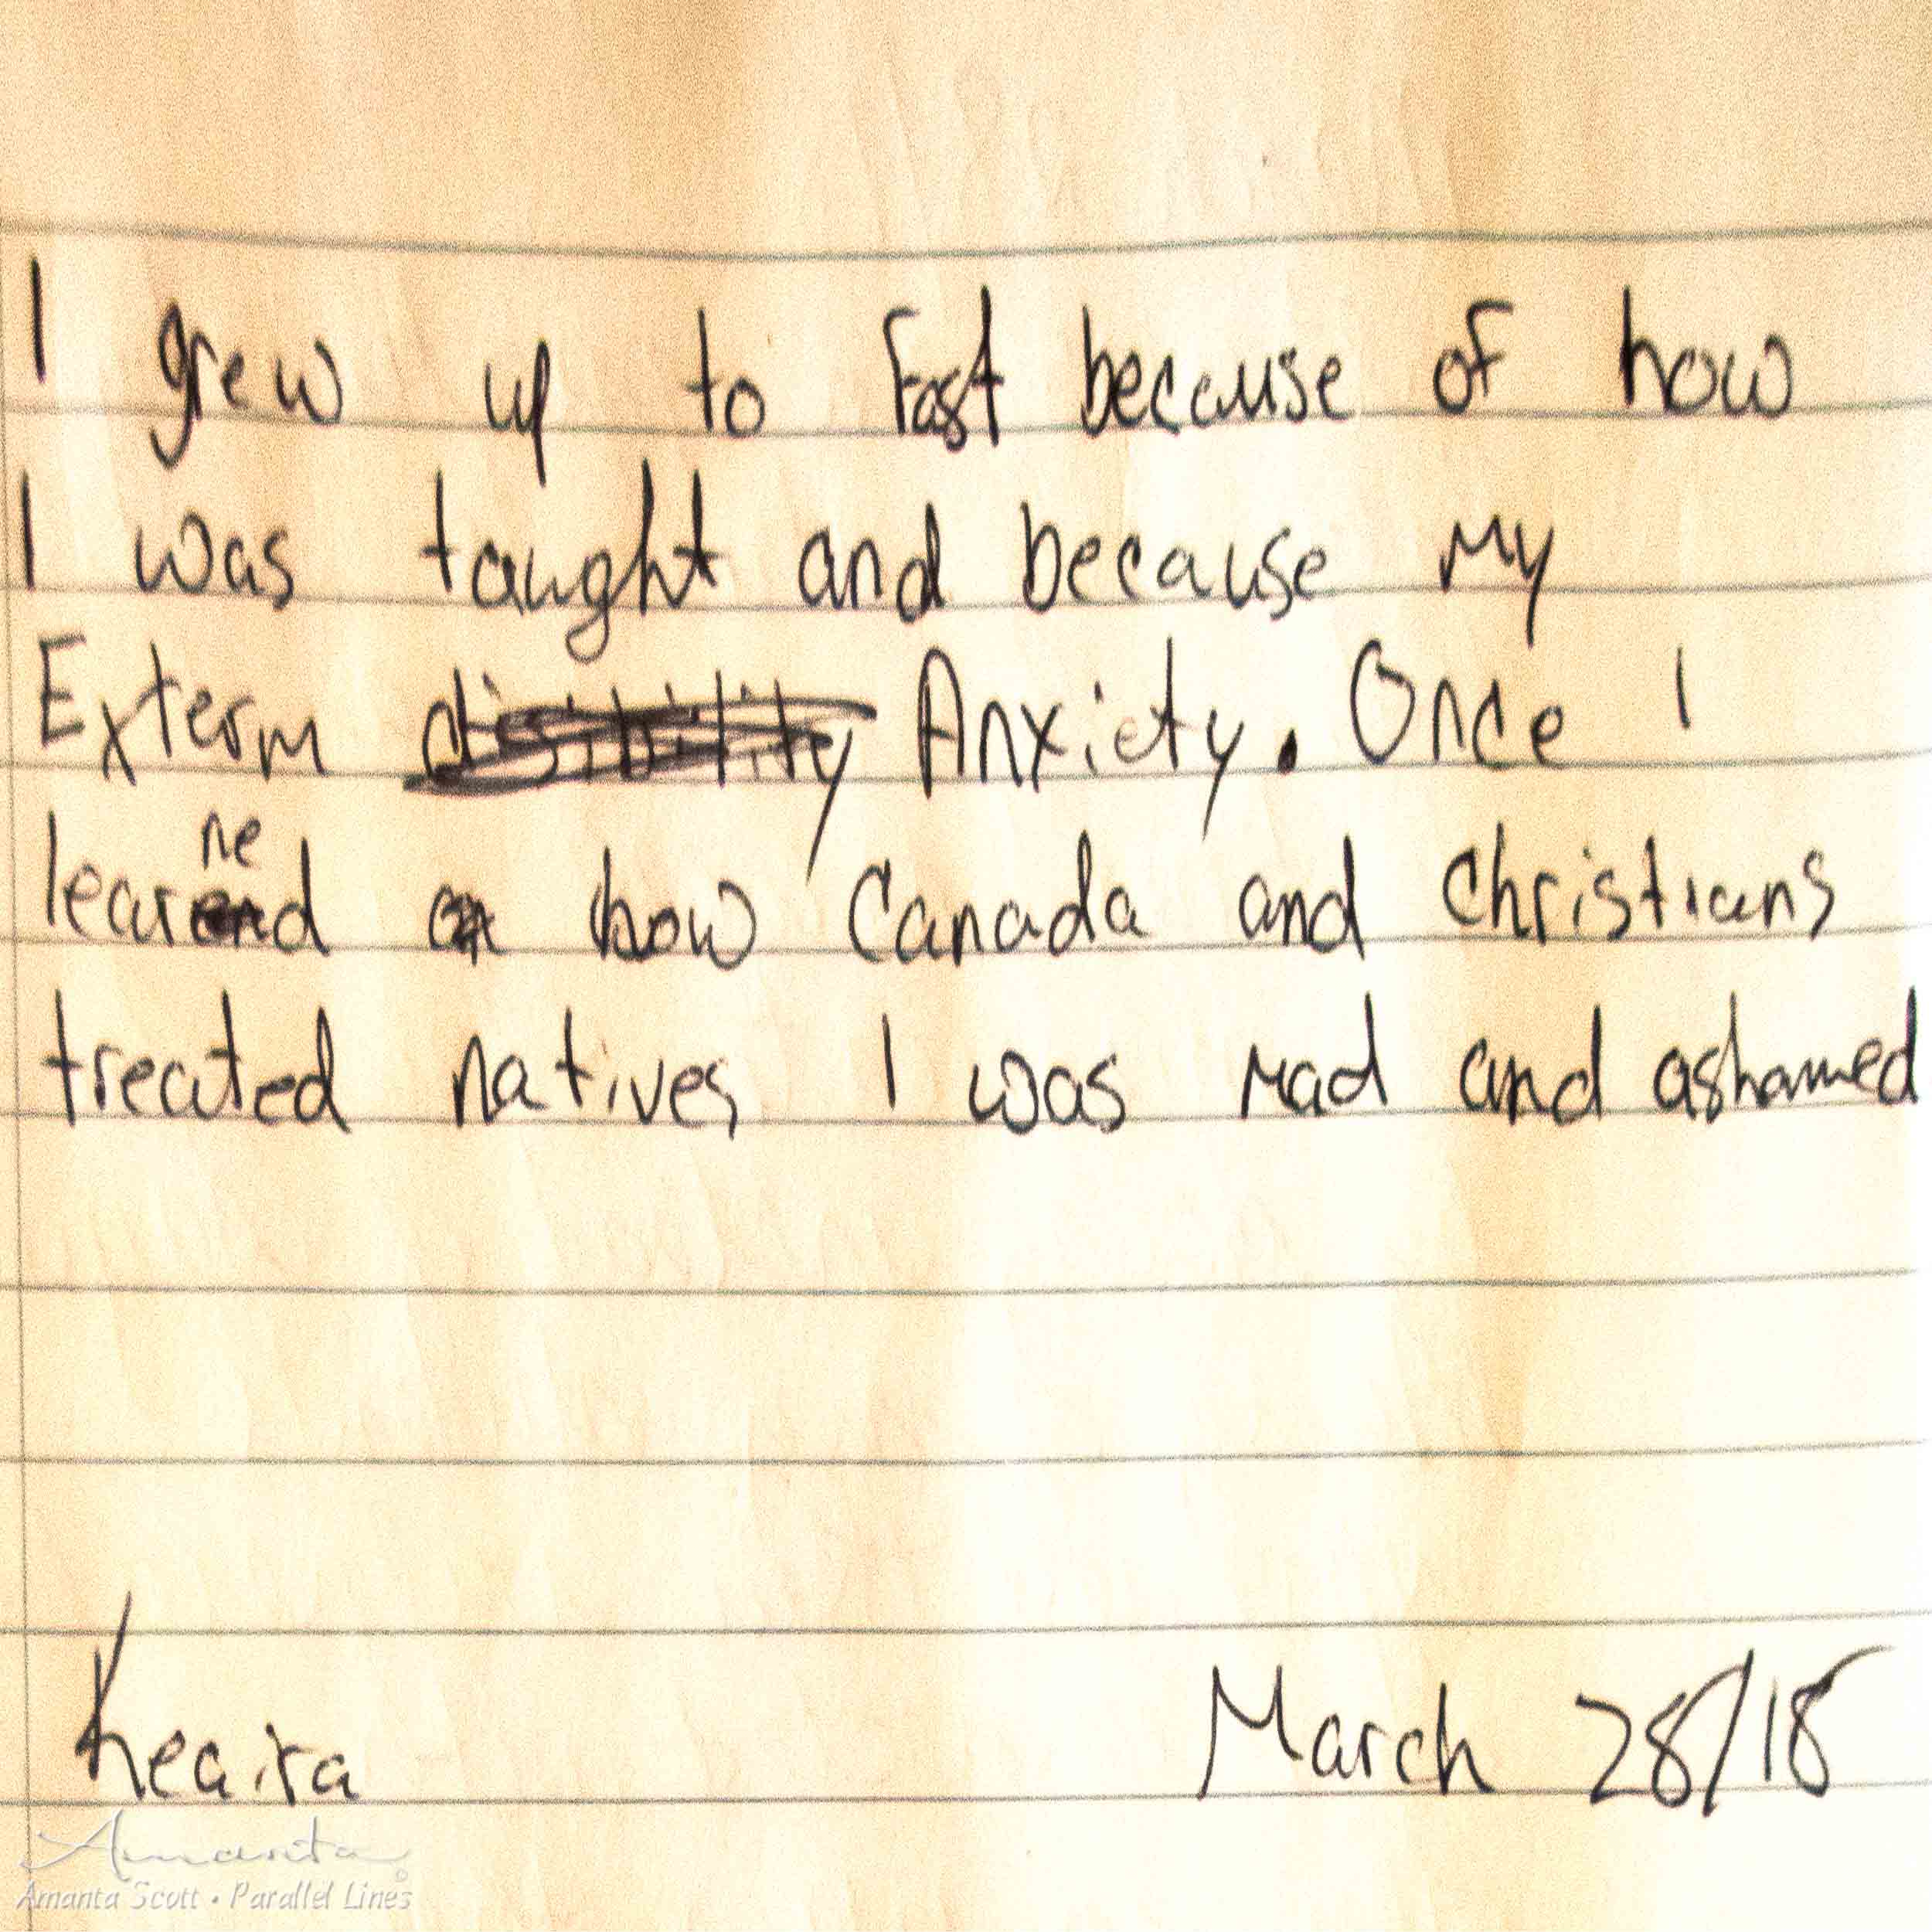 I grew up to fast because of how
I was taught and because my
Exterm disibility Anxiety. Once I
learned how Canada and Christians
treated natives I was mad and ashamed
Keaira
March 28/18
Amanta
Amanta Scott • Parallel Lines